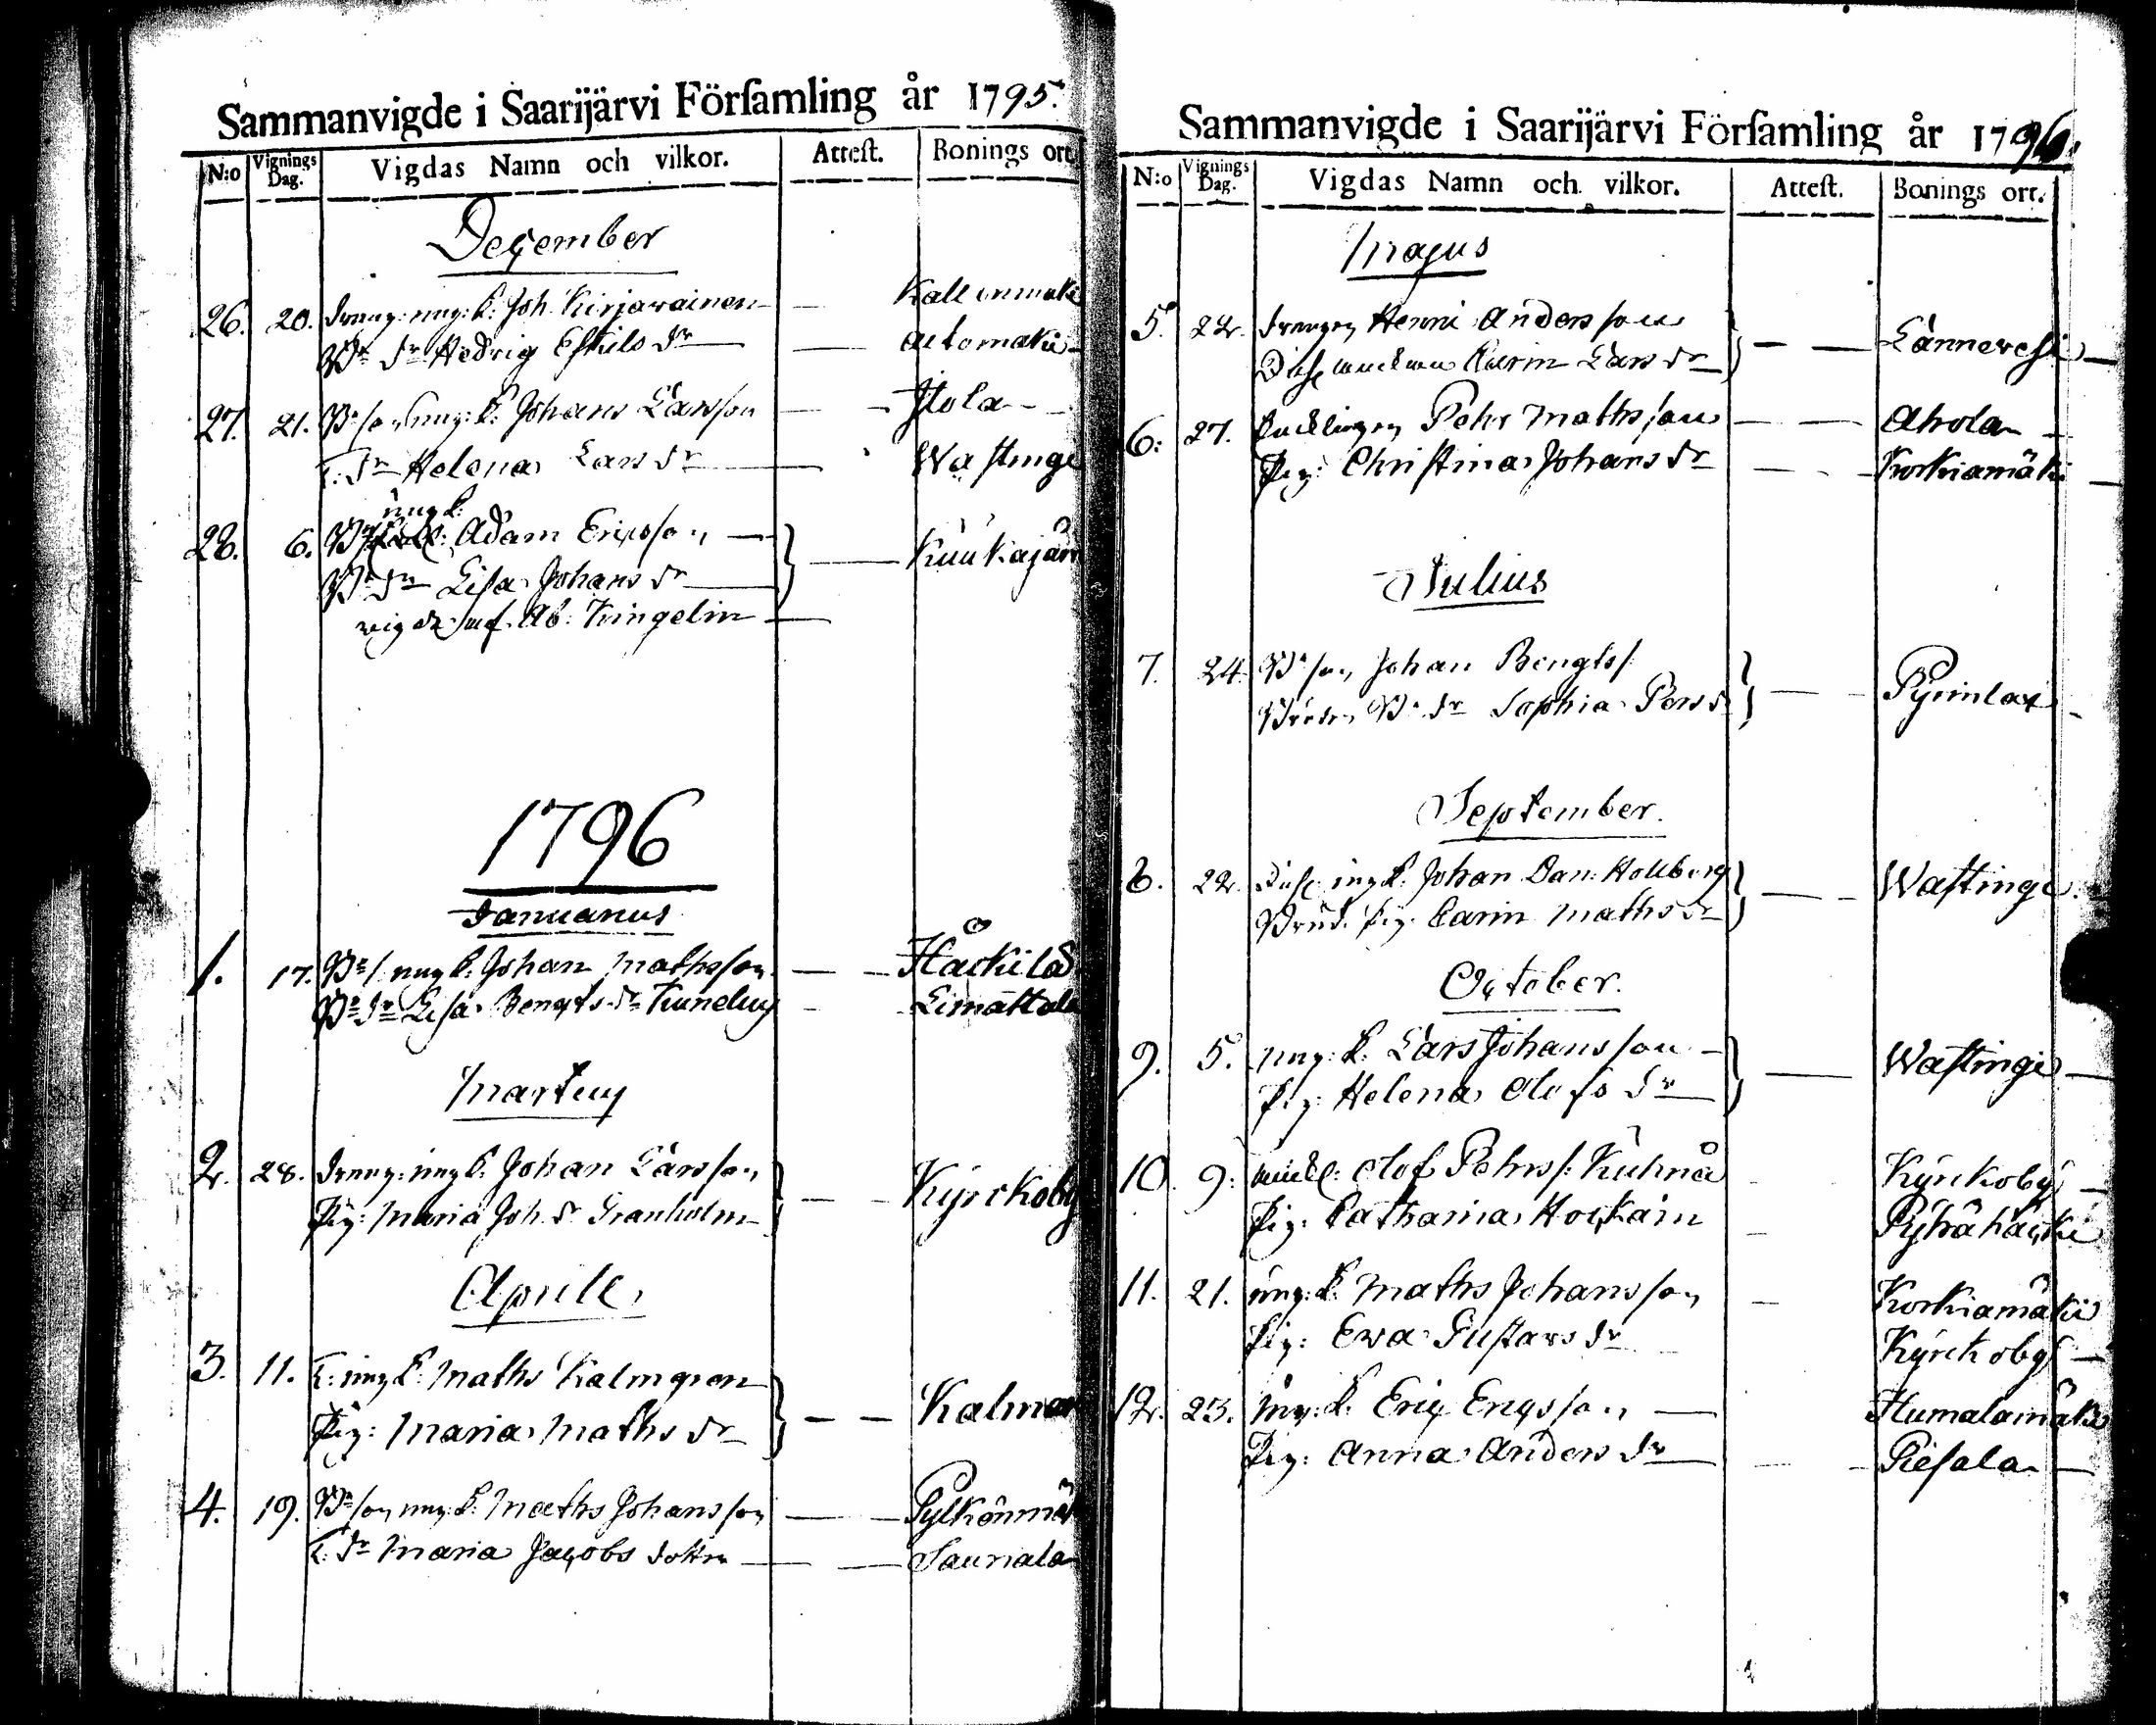 Sammanvigde i Saarijärvi Förſamling år 1795.
N:o Vignings Dag. Vigdas Namn och vilkor. Atteſt. Bonings ort
December
26. 20. Dräng: ung: k: Joh. Kirjarainen — Kallenmäki
Bd dr Hedvig Eskils dr — Automäki
27. 21. Bd son ung: k: Johans Larsson — Itola
T: dr Helena Lars dr — Wastinge
ung k:
28. 6. Adam Ericsson — Kuukajärv
Bd dr Lisa Johans dr
vigde af Ab: Kingelin
1796
Januarius
1. 17. Bd s. ung k: Johan Mathsson — Häckilä
Bd dr Lisa Bengts dr — Limattala
Martius
2. 28. Dräng: ung k: Johan Larsson — Kyrckoby
Pig: Maria Joh. dr Granholm
Aprill
3. 11. T: ung k: Maths Kalmgren — Kalmar
Pig: Maria Maths dr
4. 19. Bd son ung: k: Maths Johansson — Pylkönmäk
T: dr Maria Jacobs dottr — Saunala
Sammanvigde i Saarijärvi Förſamling år 1796.
N:o Vignings Dag. Vigdas Namn och vilkor. Atteſt. Bonings ort.
Majus
5. 22. Drängen Henric Andersson — Länneresi
Karin Lars dr
6. 27. Pehr Mathsson — Ahola
Pig: Christina Johans dr — Korkiamäki
Julius
7. 24. Bd son Johan Bengts s. — Pyrinlax
Bd dr Sophia Pers d
September.
8. 22. ung k: Johan Dan: Hollberg — Wastinge
Brud. Pig. Carin Maths dr
October.
9. 5. Ung: k: Lars Johansson — Wastinge
Pig: Helena Olofs dr
10. 9. Olof Pehrs s: Kuhnå — Kyrckoby
Pig: Catharina Hockain — Pyhähäcki
11. 21. ung: k: Maths Johansson — Korkiamäki
Pig: Eva Gustavs dr — Kyrckoby
12. 23. Ung: k: Eric Ericsson — Humalamäki
Pig: Anna Anders dr — Riesala